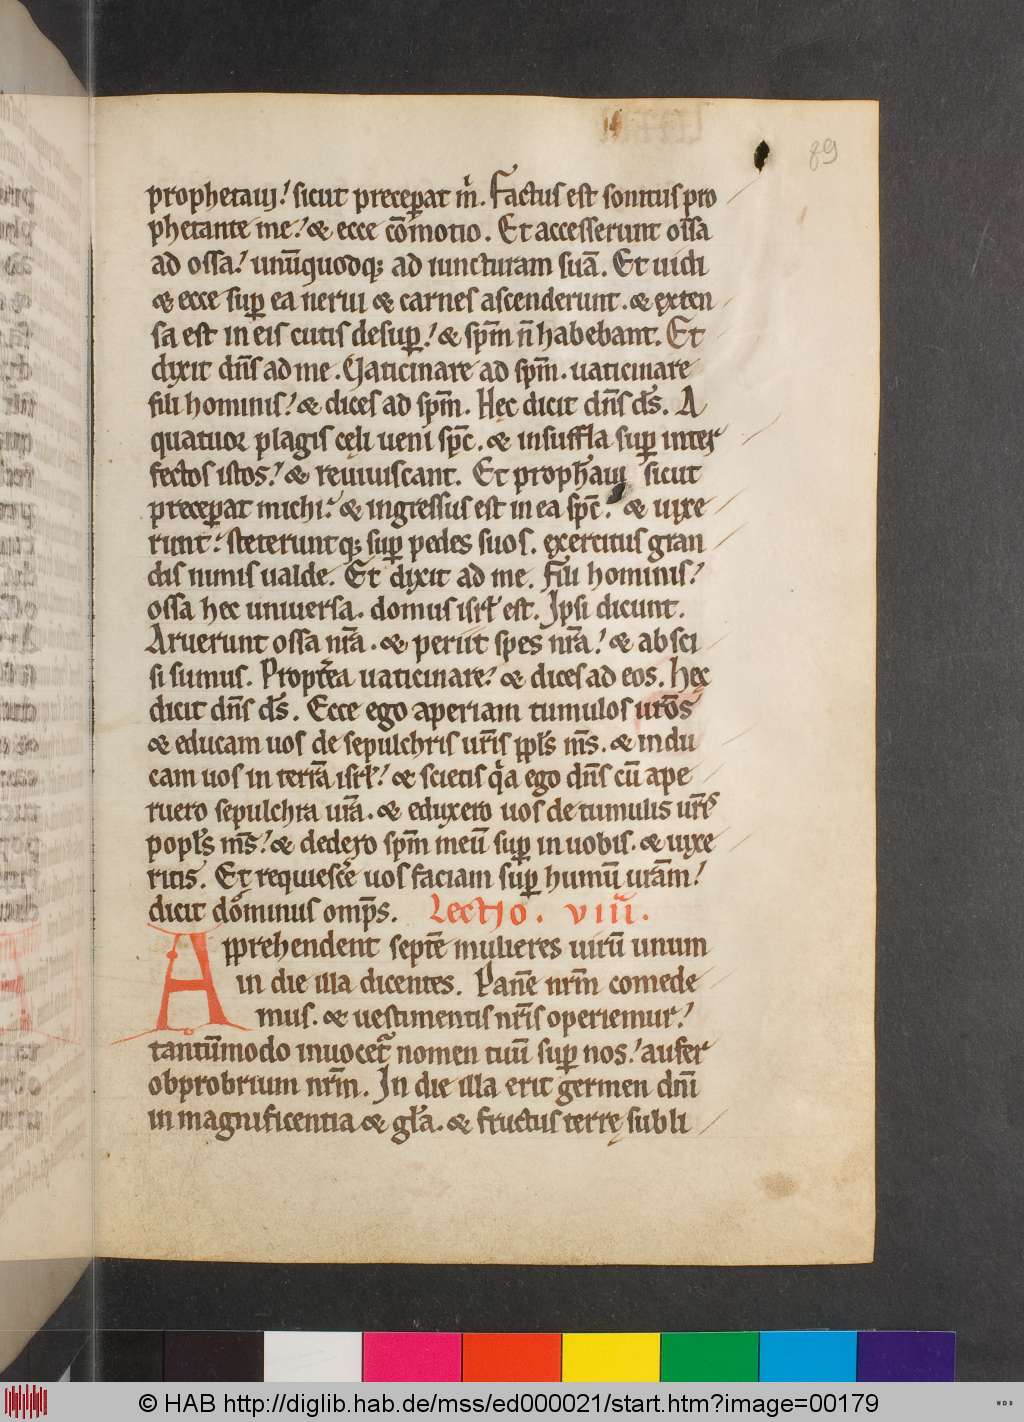 89
prophetaui. sicut precepat m̄. Factus est sonitus pro
phetante me. & ecce cōmotio. Et accesserunt ossa
ad ossa. unūquodq; ad iuncturam suā. Et uidi
& ecce sup ea nerui & carnes ascenderunt. & exten
sa est in eis cutis desup. & spm̄ n̄ habebant. Et
dixit dn̄s ad me. Vaticinare ad spm̄. uaticinare
fili hominis. & dices ad spm̄. Hec dicit dn̄s ds̄. A
quatuor plagis celi ueni spc̄. & insuffla sup inter
fectos istos. & reuiuiscant. Et prophaui sicut
precepat michi. & ingressus est in ea spc̄. & uixe
runt. steteruntq; sup pedes suos. exercitus gran
dis nimis ualde. Et dixit ad me. Fili hominis.
ossa hec uniuersa. domus isrł est. Ipsi dicunt.
Aruerunt ossa nr̄a. & periit spes nr̄a. & absci
si sumus. Propt̄ea uaticinare. & dices ad eos. Hec
dicit dn̄s ds̄. Ecce ego aperiam tumulos urōs
& educam uos de sepulchris ur̄is ppłs ms̄. & indu
cam uos in terrā isrł. & scietis qa ego dn̄s cū ape
ruero sepulchra ur̄a. & eduxero uos de tumulis ur̄is
popłs ms̄. & dedero spm̄ meū sup in uobis. & uixe
ritis. Et requiescē uos faciam sup humū urām.
dicit dominus omps̄. Lectio. viii.
Apprehendent septē mulieres uirū unum
in die illa dicentes. Panē nrm̄ comede
mus. & uestimentis nr̄is operiemur.
tantūmodo inuocet nomen tuū sup nos. aufer
obprobrium nrm̄. In die illa erit germen dn̄i
in magnificentia & głа. & fructus terrę subli
© HAB http://diglib.hab.de/mss/ed000021/start.htm?image=00179